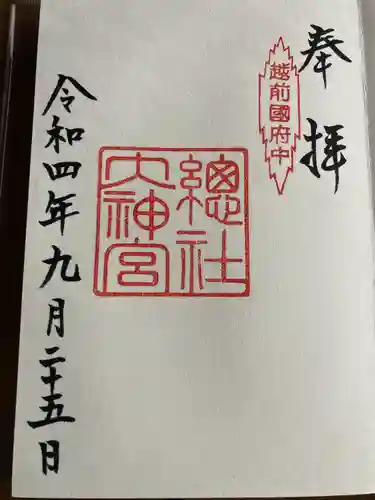 奉拝
越前國府中
總社
大神宮
令和四年九月二十五日